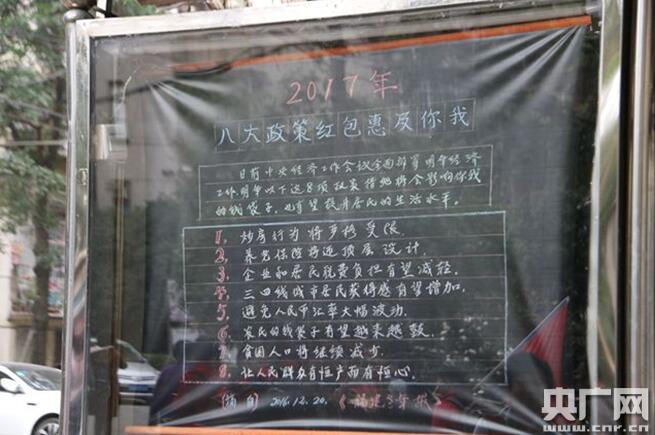 2017年
八大政策红包惠及你我
日前中央经济工作会议全面部署明年经济
工作,明年以下这8项政策措施将会影响你我
的钱袋子,也有望提升居民的生活水平。
1、炒房行为将严格受限
2、养老保险将迎顶层设计.
3、企业和居民税费负担有望减轻.
4、三四线城市居民获得感有望增加.
5、避免人民币汇率大幅波动.
6、农民的钱袋子有望越来越鼓.
7、贫困人口将继续减少.
8、让人民群众有恒产而有恒心.
(摘自)2016.12.20.
央广网
www.cnr.cn